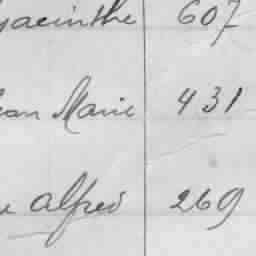 Hyacinthe 607
Jean Marie 431
Alfred 269